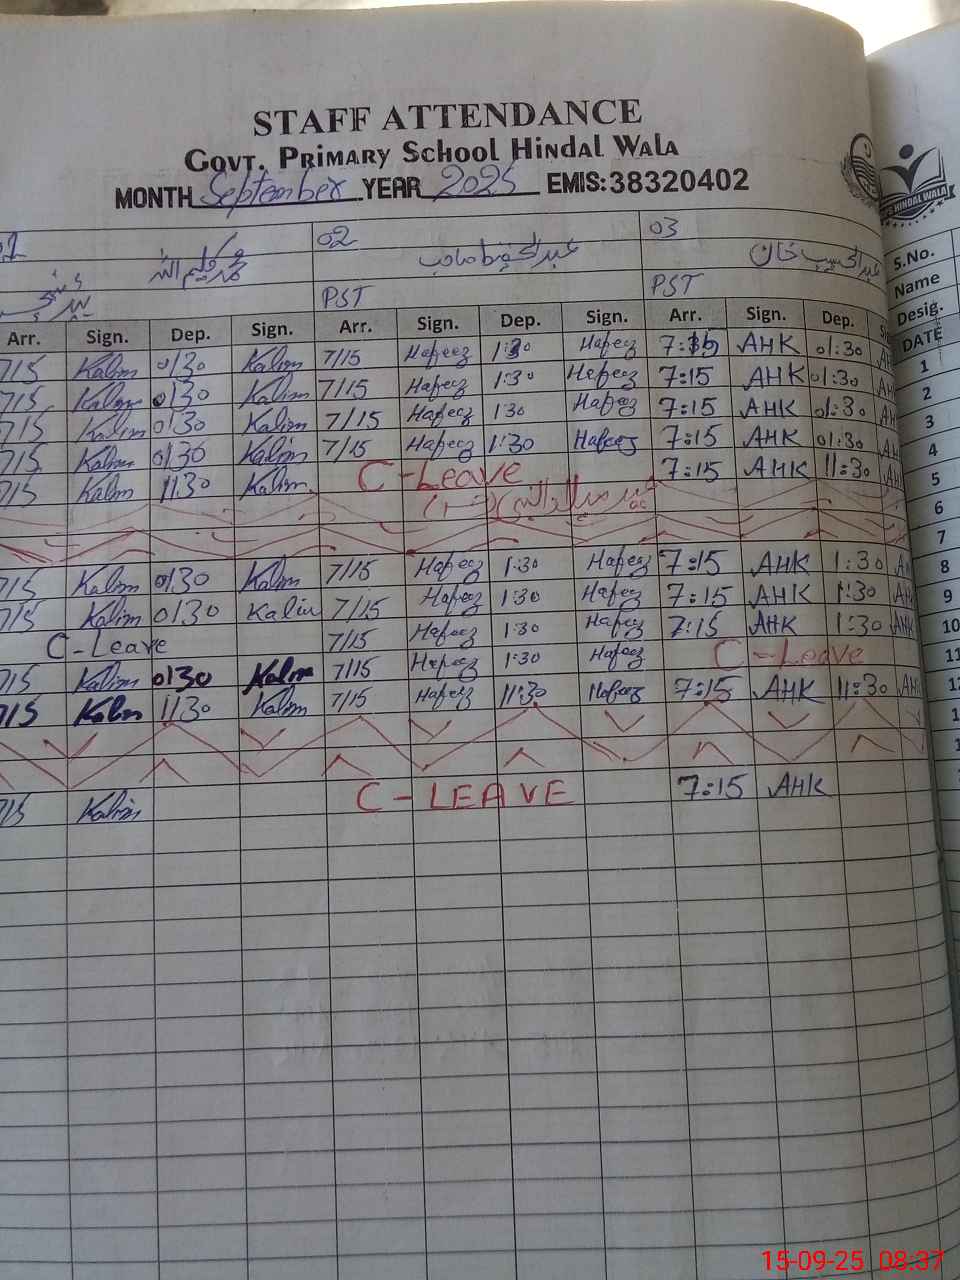 STAFF ATTENDANCE
GOVT. PRIMARY SCHOOL HINDAL WALA
MONTH September YEAR 2025 EMIS: 38320402
HINDAL WALA
02 03
محمد کلیم اللہ عبدالحفیظ صاحب عبدالحسیب خان
PST PST
Arr. Sign. Dep. Sign. Arr. Sign. Dep. Sign. Arr. Sign. Dep.
S.No.
Name
Desig.
DATE
7/15 Kalim 0130 Kalim 7/15 Hafeez 1:30 Hafeez 7:15 AHK 01:30 1
7/15 Kalim 0130 Kalim 7/15 Hafeez 1:30 Hafeez 7:15 AHK 01:30 2
7/15 Kalim 0130 Kalim 7/15 Hafeez 130 Hafeez 7:15 AHK 01:30 3
7/15 Kalim 0130 Kalim 7/15 Hafeez 1:30 Hafeez 7:15 AHK 01:30 4
7/15 Kalim 1130 Kalim C-Leave 7:15 AHK 11:30 5
عید میلادالنبی 6
7
7/15 Kalim 0130 Kalim 7/15 Hafeez 1:30 Hafeez 7:15 AHK 1:30 8
7/15 Kalim 0130 Kalim 7/15 Hafeez 1:30 Hafeez 7:15 AHK 1:30 9
C-Leave 7/15 Hafeez 1:30 Hafeez 7:15 AHK 1:30 10
7/15 Kalim 0130 Kalim 7/15 Hafeez 1:30 Hafeez C-Leave 11
7/15 Kalim 1130 Kalim 7/15 Hafeez 11:30 Hafeez 7:15 AHK 11:30 AHK 12
7/15 Kalim C-LEAVE 7:15 AHK
15-09-25 08:37